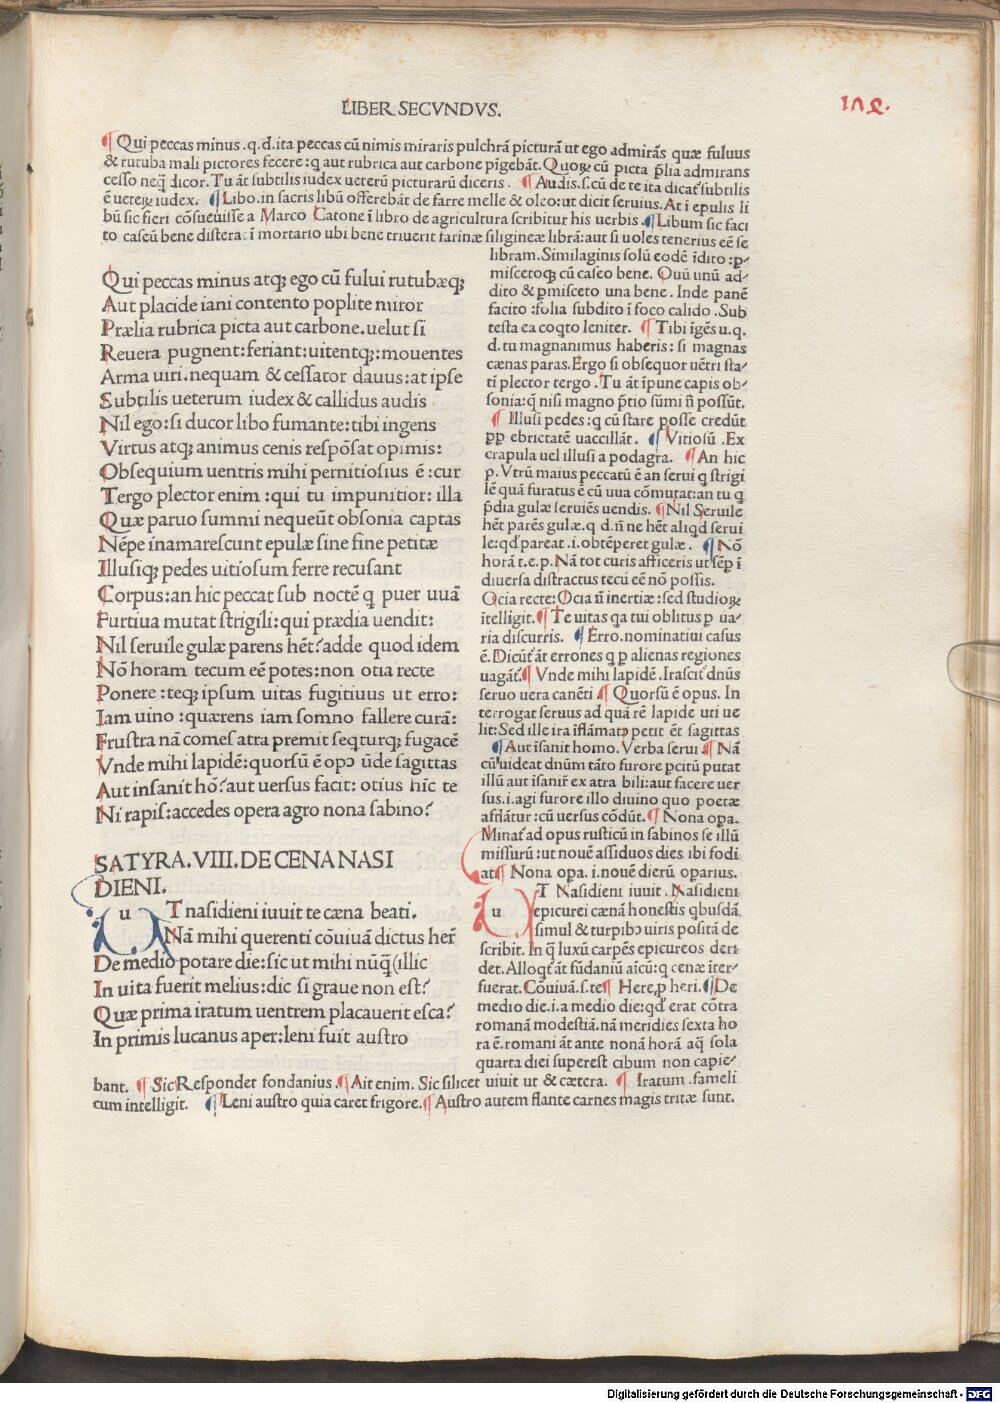 LIBER SECVNDVS.
¶ Qui peccas minus .q.d.ita peccas cū nimis miraris pulchrā picturā ut ego admirās quæ fuluus
& rutuba mali pictores fecere:q aut rubrica aut carbone pīgebāt.Quoꝝ cū picta p̄lia admirans
cesso neq̄ dicor.Tu āt subtilis iudex ueterū picturarū diceris. ¶ Audis.s.cū de te ita dicat̄ subtilis
ē ueteꝝ iudex. ¶ Libo.in sacris libū offerebāt de farre melle & oleo:ut dicit seruius.At i epulis li
bū sic fieri cōsueuisse a Marco Catone ī libro de agricultura scribitur his uerbis.¶ Libum sic faci
to caseū bene distera: ī mortario ubi bene triuerit farinæ siligineæ librā:aut si uoles tenerius eē se
Qui peccas minus atqꝫ ego cū fului rutubæqꝫ
Aut placide iani contento poplite miror
Prælia rubrica picta aut carbone.uelut si
Reuera pugnent:feriant:uitentqꝫ:mouentes
Arma uiri.nequam & cessator dauus:at ipse
Subtilis ueterum iudex & callidus audis
Nil ego:si ducor libo fumante:tibi ingens
Virtus atqꝫ animus cenis respōsat opimis:
Obsequium uentris mihi pernitiosius ē :cur
Tergo plector enim :qui tu impunitior: illa
Quæ paruo summi nequeūt obsonia captas
Nēpe inamarescunt epulæ sine fine petitæ
Illusiqꝫ pedes uitiosum ferre recusant
Corpus:an hic peccat sub noctē q̄ puer uuā
Furtiua mutat strigili:qui prædia uendit:
Nil seruile gulæ parens hēt?adde quod idem
Nō horam tecum eē potes:non otia recte
Ponere :teqꝫ ipsum uitas fugitiuus ut erro:
Iam uino :quærens iam somno fallere curā:
Frustra nā comes atra premit seqturqꝫ fugacē
Vnde mihi lapidē:quorsū ē opꝰ ūde sagittas
Aut insanit hō?aut uersus facit: otius hīc te
Ni rapis:accedes opera agro nona sabino?
SATYRA.VIII.DE CENA NASI
DIENI.
u T nasidieni iuuit te cæna beati.
Nā mihi querenti cōuiuā dictus her̄
De medio potare die:sic ut mihi nūq̄(illic
In uita fuerit melius:dic si graue non est?
Quæ prima iratum uentrem placauerit esca?
In primis lucanus aper:leni fuit austro
libram.Similaginis solū eodē īdito :p̱-
miscetoqꝫ cū caseo bene. Ouū unū ad-
dito & p̱misceto una bene. Inde panē
facito :folia subdito ī foco calido .Sub
testa ea coqto leniter. ¶ Tibi īgēs u.q.
d.tu magnanimus haberis: si magnas
cænas paras.Ergo si obsequor uētri sta-
tī plector tergo .Tu āt īpune capis ob-
sonia:q̄ nisi magno p̄tio sūmi n̄ possūt.
¶ Illusi pedes:q cū stare posse credūt
pp̱ ebrictatē uaccillāt. ¶ Vitiosū .Ex
crapula uel illusi a podagra. ¶ An hic
p.Vtrū maius peccatū ē an serui q strigi
lē quā furatus ē cū uua cōmutat:an tu q
p̄dia gulæ seruiēs uendis. ¶Nil Seruile
hēt parēs gulæ.q d.n̄ ne hēt aliqd serui
le:qd̄ pareat .i.obtēperet gulæ. ¶ Nō
horā t.e.p.Nā tot curis afficeris ut sēp̱ ī
diuersa distractus tecū eē nō possis.
Ocia recte:Ocia n̄ inertiæ:sed studioꝝ
ītelligit.¶ Te uitas qa tui oblitus p̱ ua-
ria discurris. ¶ Erro.nominatiui casus
ē.Dicūt̄ āt errones q p̱ alienas regiones
uagāt̄.¶ Vnde mihi lapidē.Irascit̄ dnūs
seruo uera canēti ¶ Quorsū ē opus. In
terrogat seruus ad quā rē lapide uti ue
lit:Sed ille ira īflāmatꝰ petit ēt sagittas
¶ Aut īsanit homo.Verba serui ¶ Nā
cū uideat dnūm tāto furore p̱citū putat
illū aut īsanir̄ ex atra bili:aut facere uer
sus.i.agi furore illo diuino quo poetæ
afflātur :cū uersus cōdūt.¶ Nona opa.
Minat̄ ad opus rusticū in sabinos se illū
missurū:ut nouē assiduos dies ibi fodi
at¶ Nona opa.i.nouē dierū oparius.
u T Nasidieni iuuit .Nasidieni
epicurei cænā honestis qbusdā
simul & turpibꝰ uiris positā de
scribit. In q̄ luxū carpēs epicureos deri
det.Alloqt̄ āt fūdaniū aīcū:q cenæ īter-
fuerat.Cōuiuā.s.te¶ Here,p heri.¶De
medio die.i.a medio die:qd̄ erat cōtra
romanā modestiā.nā meridies sexta ho
ra ē.romani āt ante nonā horā aq̄ sola
quarta diei superest cibum non capie-
bant. ¶ Sic Respondet fondanius.¶ Ait enim. Sic silicet uiuit ut & cætera. ¶ Iratum .fameli
cum intelligit. ¶ Leni austro quia caret frigore.¶ Austro autem flante carnes magis tritæ sunt.
Digitalisierung gefördert durch die Deutsche Forschungsgemeinschaft - DFG